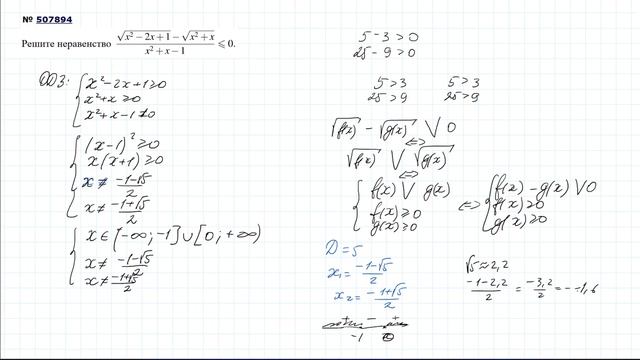 № 507894
Решите неравенство (√(x² − 2x + 1) − √(x² + x)) / (x² + x − 1) ⩽ 0.
ОДЗ: { x² − 2x + 1 ≥ 0
x² + x ≥ 0
x² + x − 1 ≠ 0
{ (x − 1)² ≥ 0
x(x + 1) ≥ 0
x ≠ (−1−√5)/2
x ≠ (−1+√5)/2
{ x ∈ (−∞; −1] ∪ [0; +∞)
x ≠ (−1−√5)/2
x ≠ (−1+√5)/2
5 − 3 > 0
25 − 9 > 0
5 > 3 5 > 3
25 > 9 25 > 9
√f(x) − √g(x) ∨ 0
⇔
√f(x) ∨ √g(x)
⇔
{ f(x) ∨ g(x)
f(x) ≥ 0
g(x) ≥ 0
⇔ { f(x) − g(x) ∨ 0
f(x) ≥ 0
g(x) ≥ 0
D = 5
x₁ = (−1−√5)/2
x₂ = (−1+√5)/2
+ − +
−1 0
√5 ≈ 2,2
(−1−2,2)/2 = (−3,2)/2 = −1,6